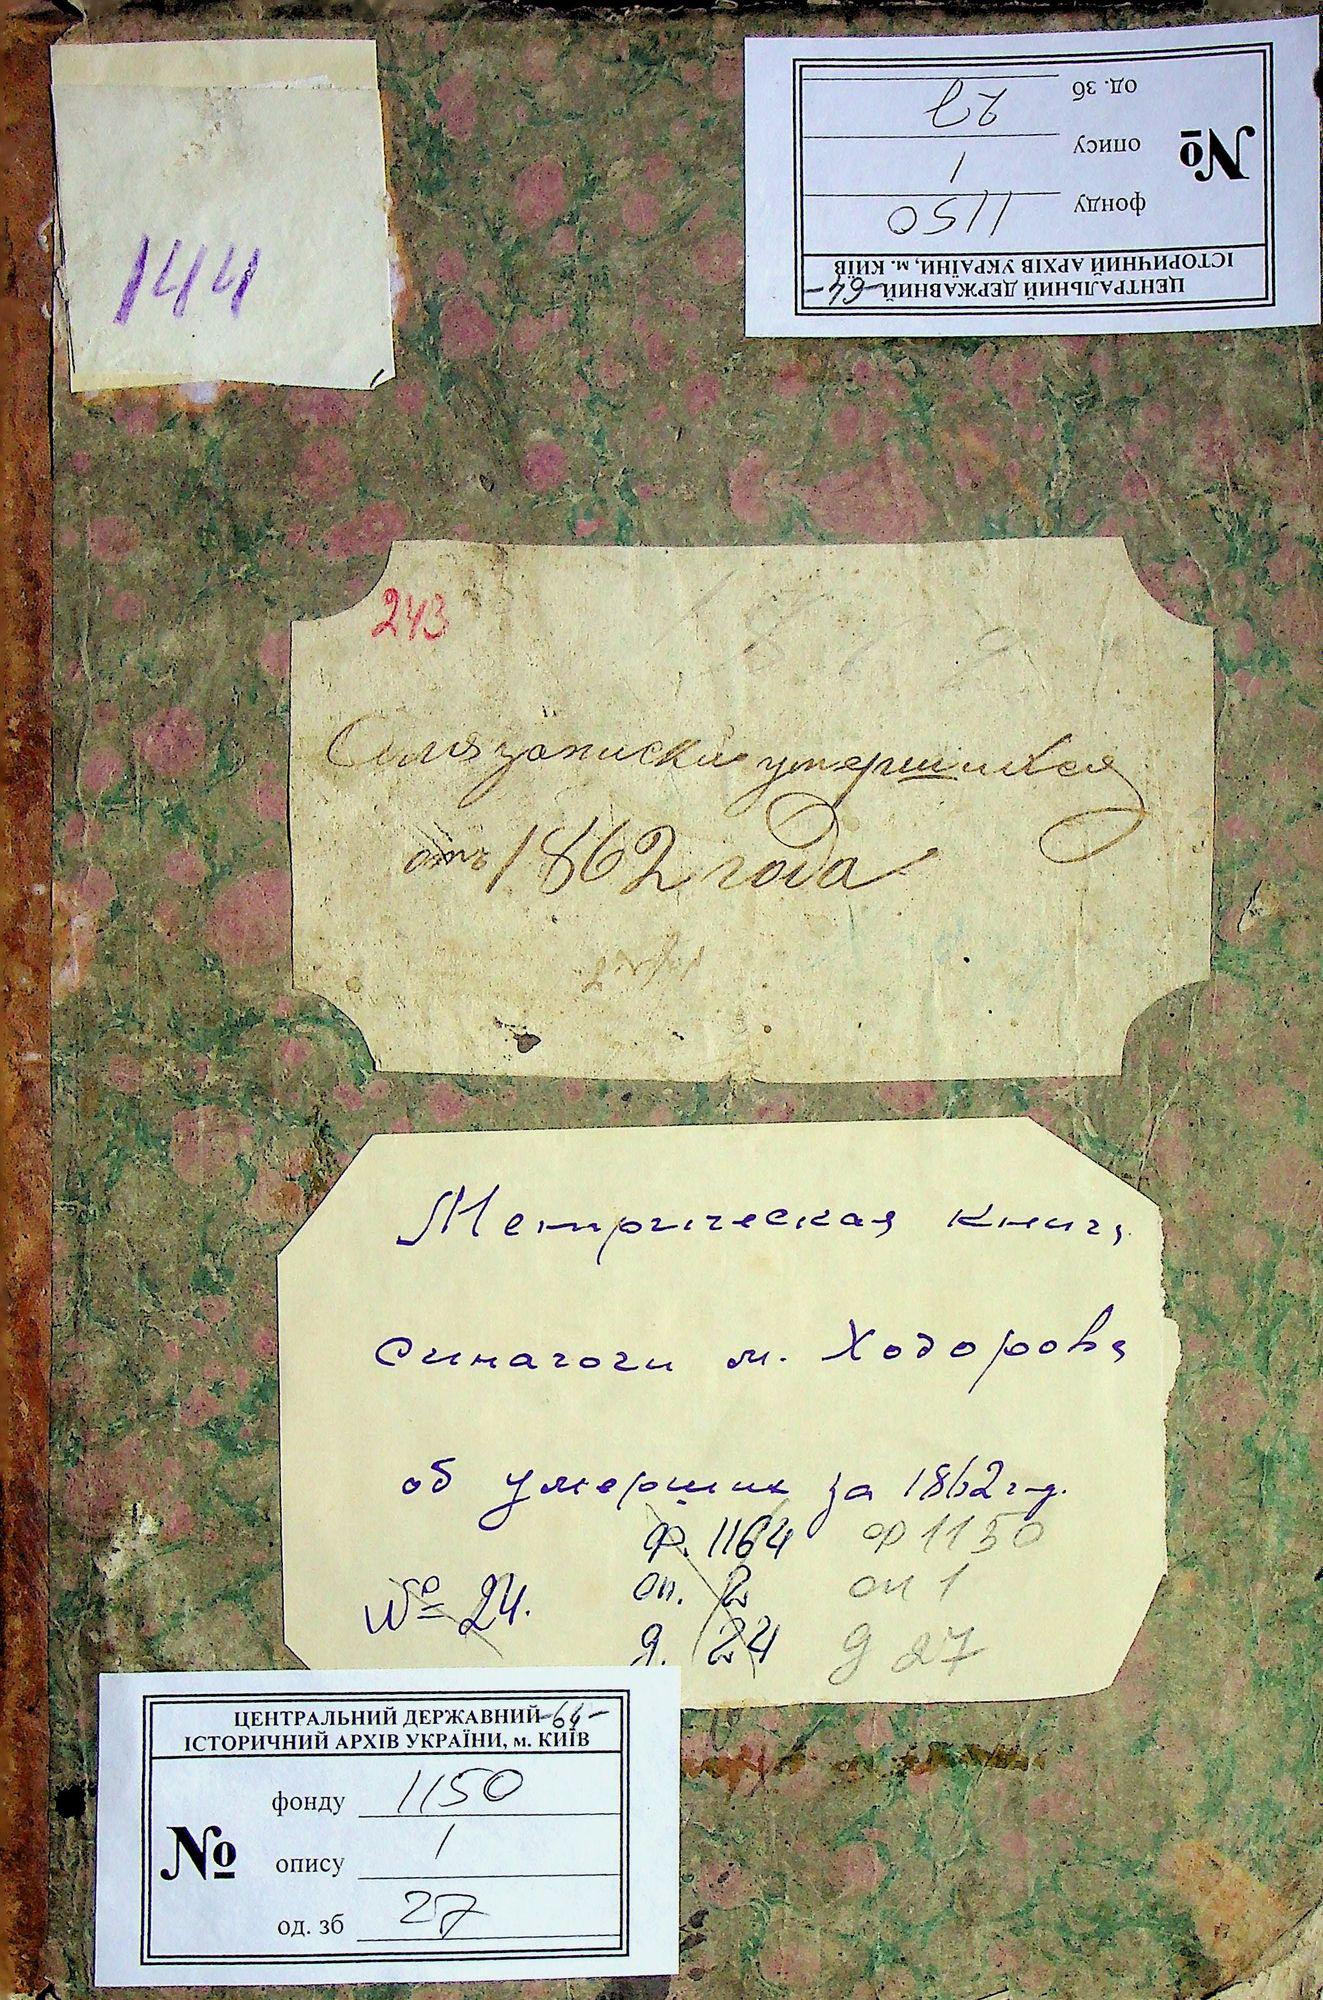 144
ЦЕНТРАЛЬНИЙ ДЕРЖАВНИЙ -64-
ІСТОРИЧНИЙ АРХІВ УКРАЇНИ, м. КИЇВ
фонду 1150
№ опису 1
од. зб 27
243
Для записки умершихся
отъ 1862 года
Метрическая книга
синагоги м. Ходорова
об умерших за 1862 год.
ф. 1164 ф 1150
№ 24. оп. 2 оп 1
д. 24 д 27
ЦЕНТРАЛЬНИЙ ДЕРЖАВНИЙ -64-
ІСТОРИЧНИЙ АРХІВ УКРАЇНИ, м. КИЇВ
фонду 1150
№ опису 1
од. зб 27